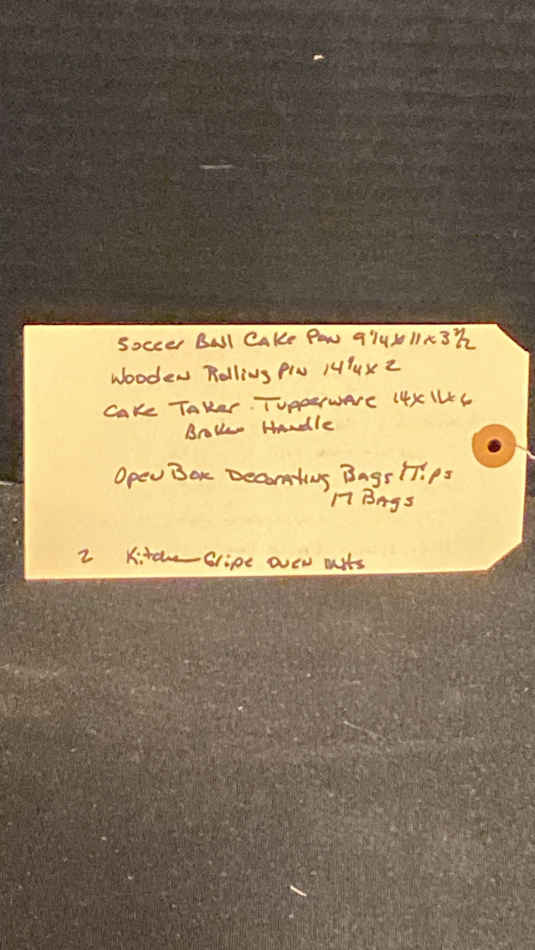 Soccer Ball Cake Pan 9 1/4 x 11 x 3 1/2
Wooden Rolling Pin 14 1/4 x 2
Cake Taker - Tupperware 14 x 11 x 6
Broken Handle
Open Box Decorating Bags Tips
17 Bags
2 Kitchen Gripe oven mits